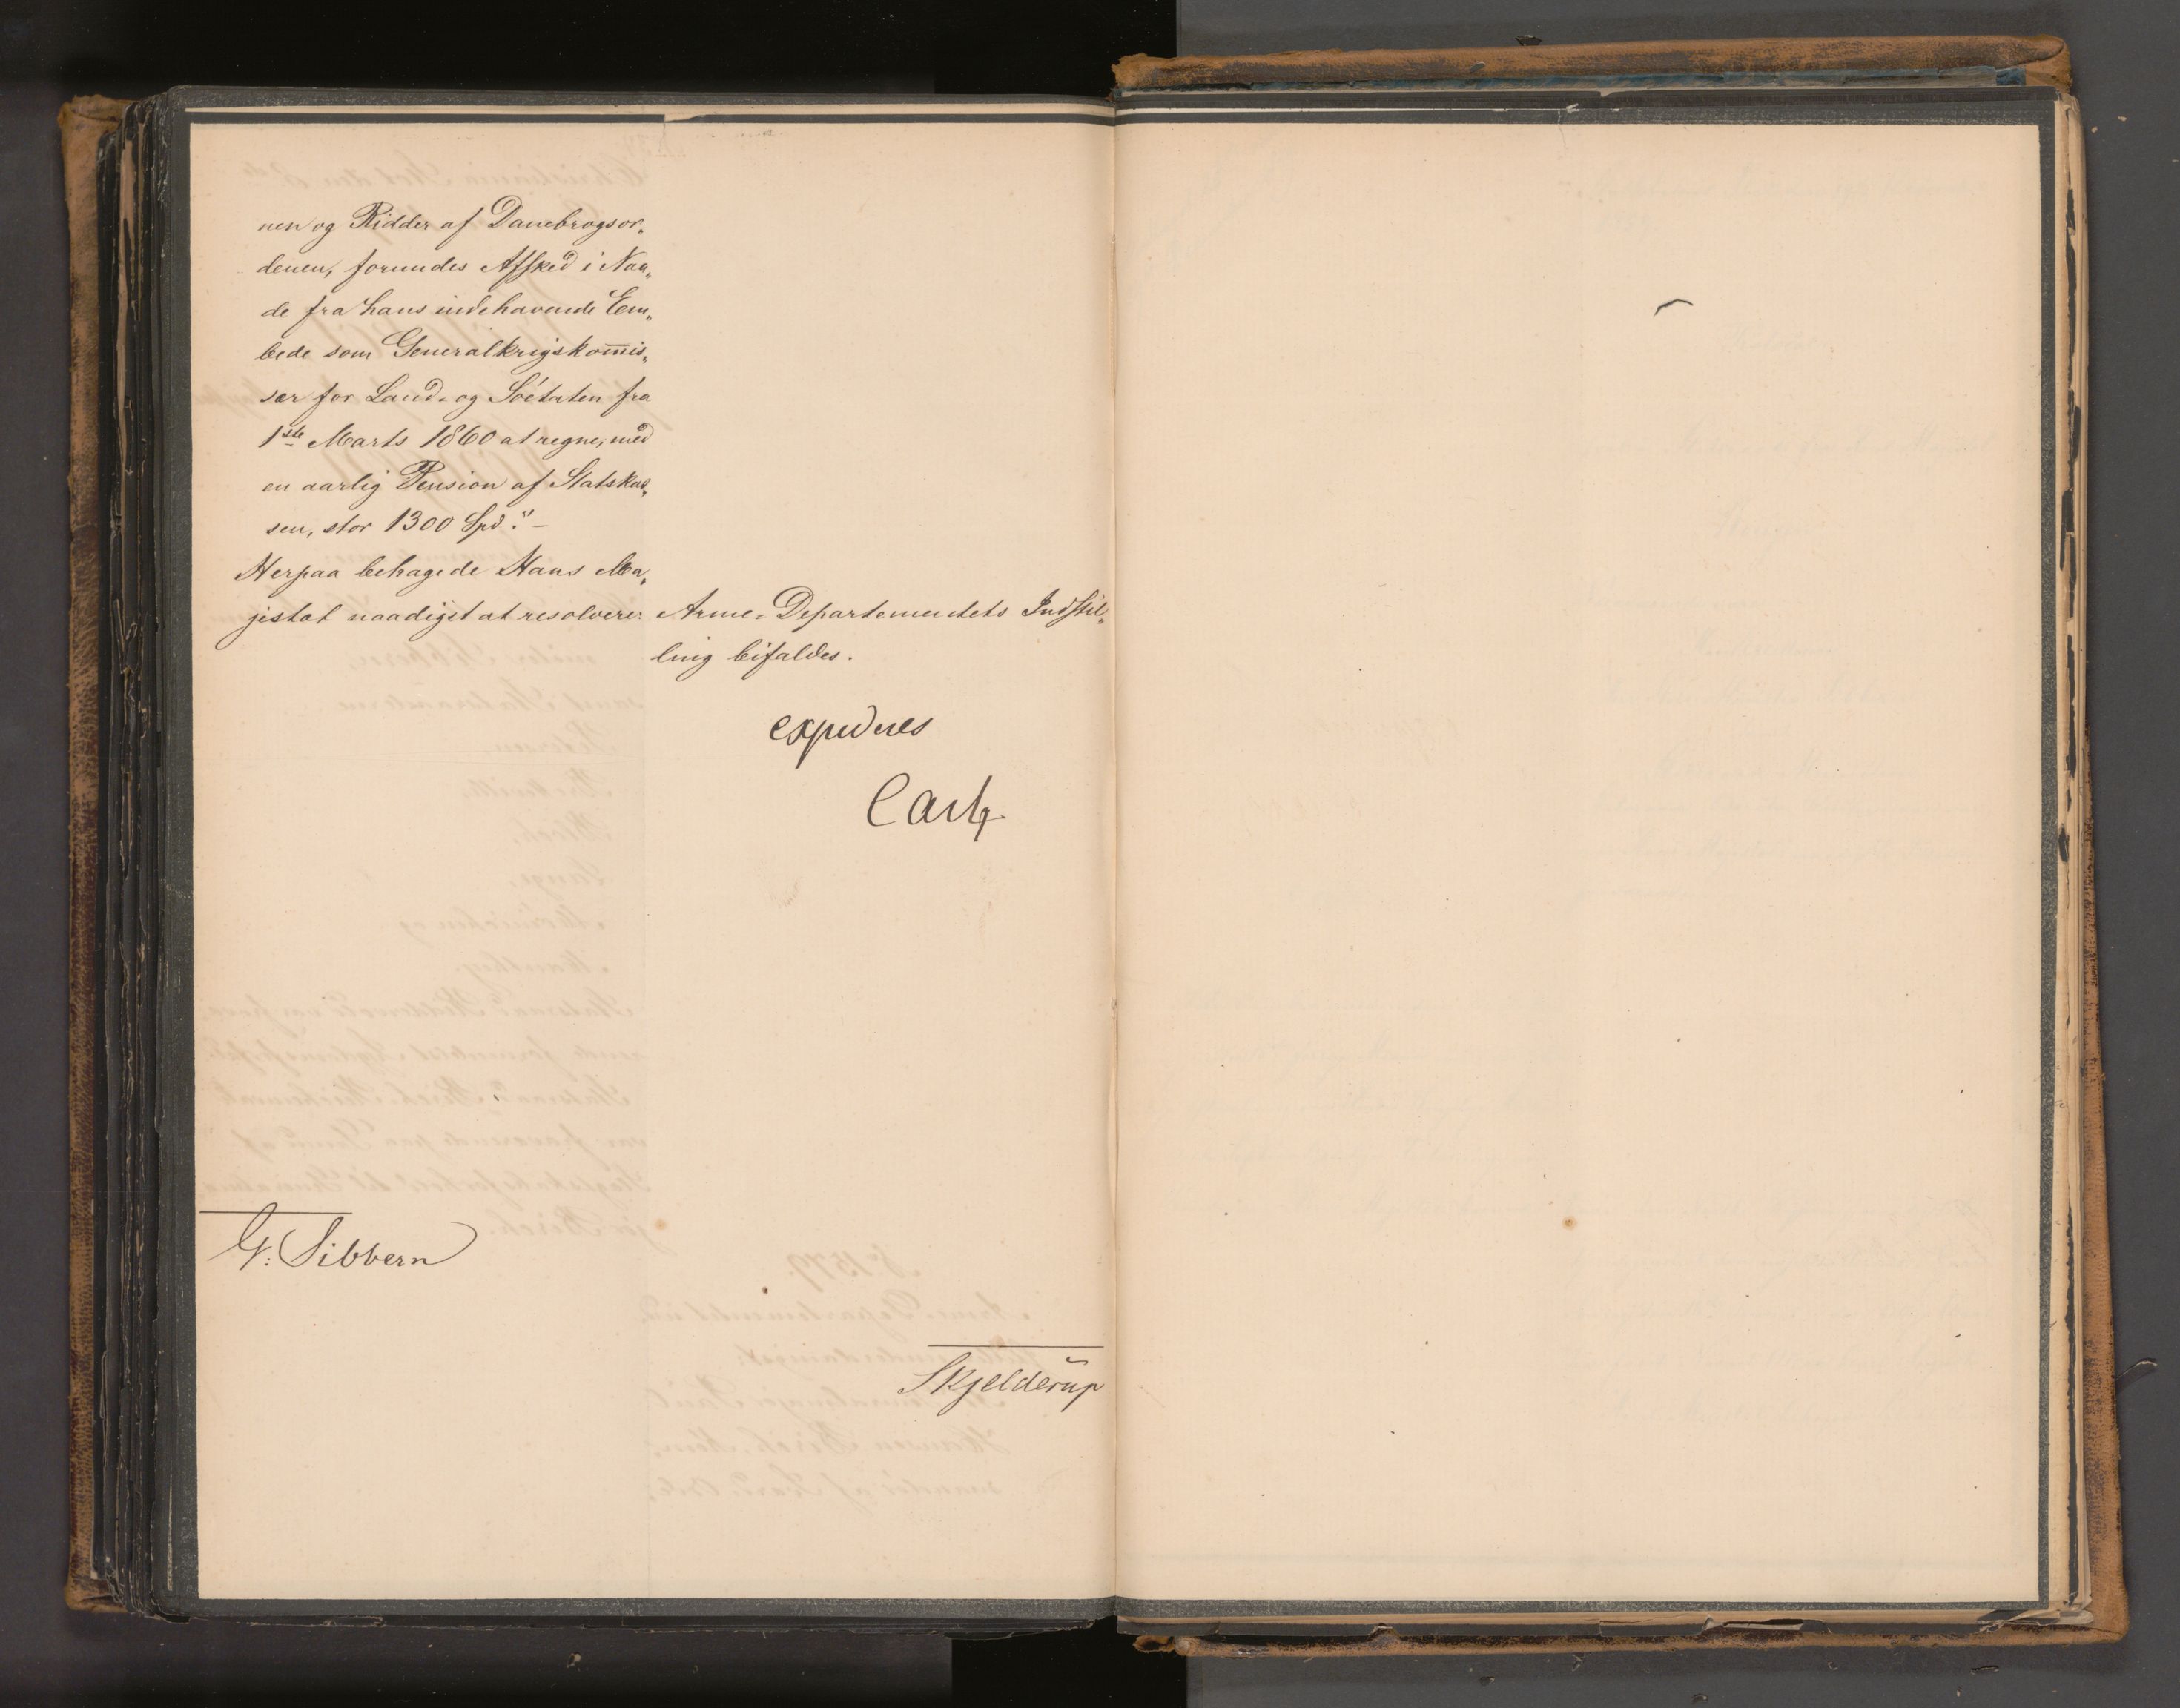 nen og Ridder af Danebrogsor„
denen, forundes Afsked i Naa„
de fra hans indehavende Em„
bede som Generalkrigskom̄is„
sær for Land- og Söetaten fra
1ste Marts 1860 at regne, med
en aarlig Pension af Statskas„
sen, stor 1300 Spd." –
Herpaa behagede Hans Ma„
jestæt naadigst at resolvere: Arme-Departementets Indstil„
ling bifaldes.
expederes
Carl
G: Sibbern
Skjelderup